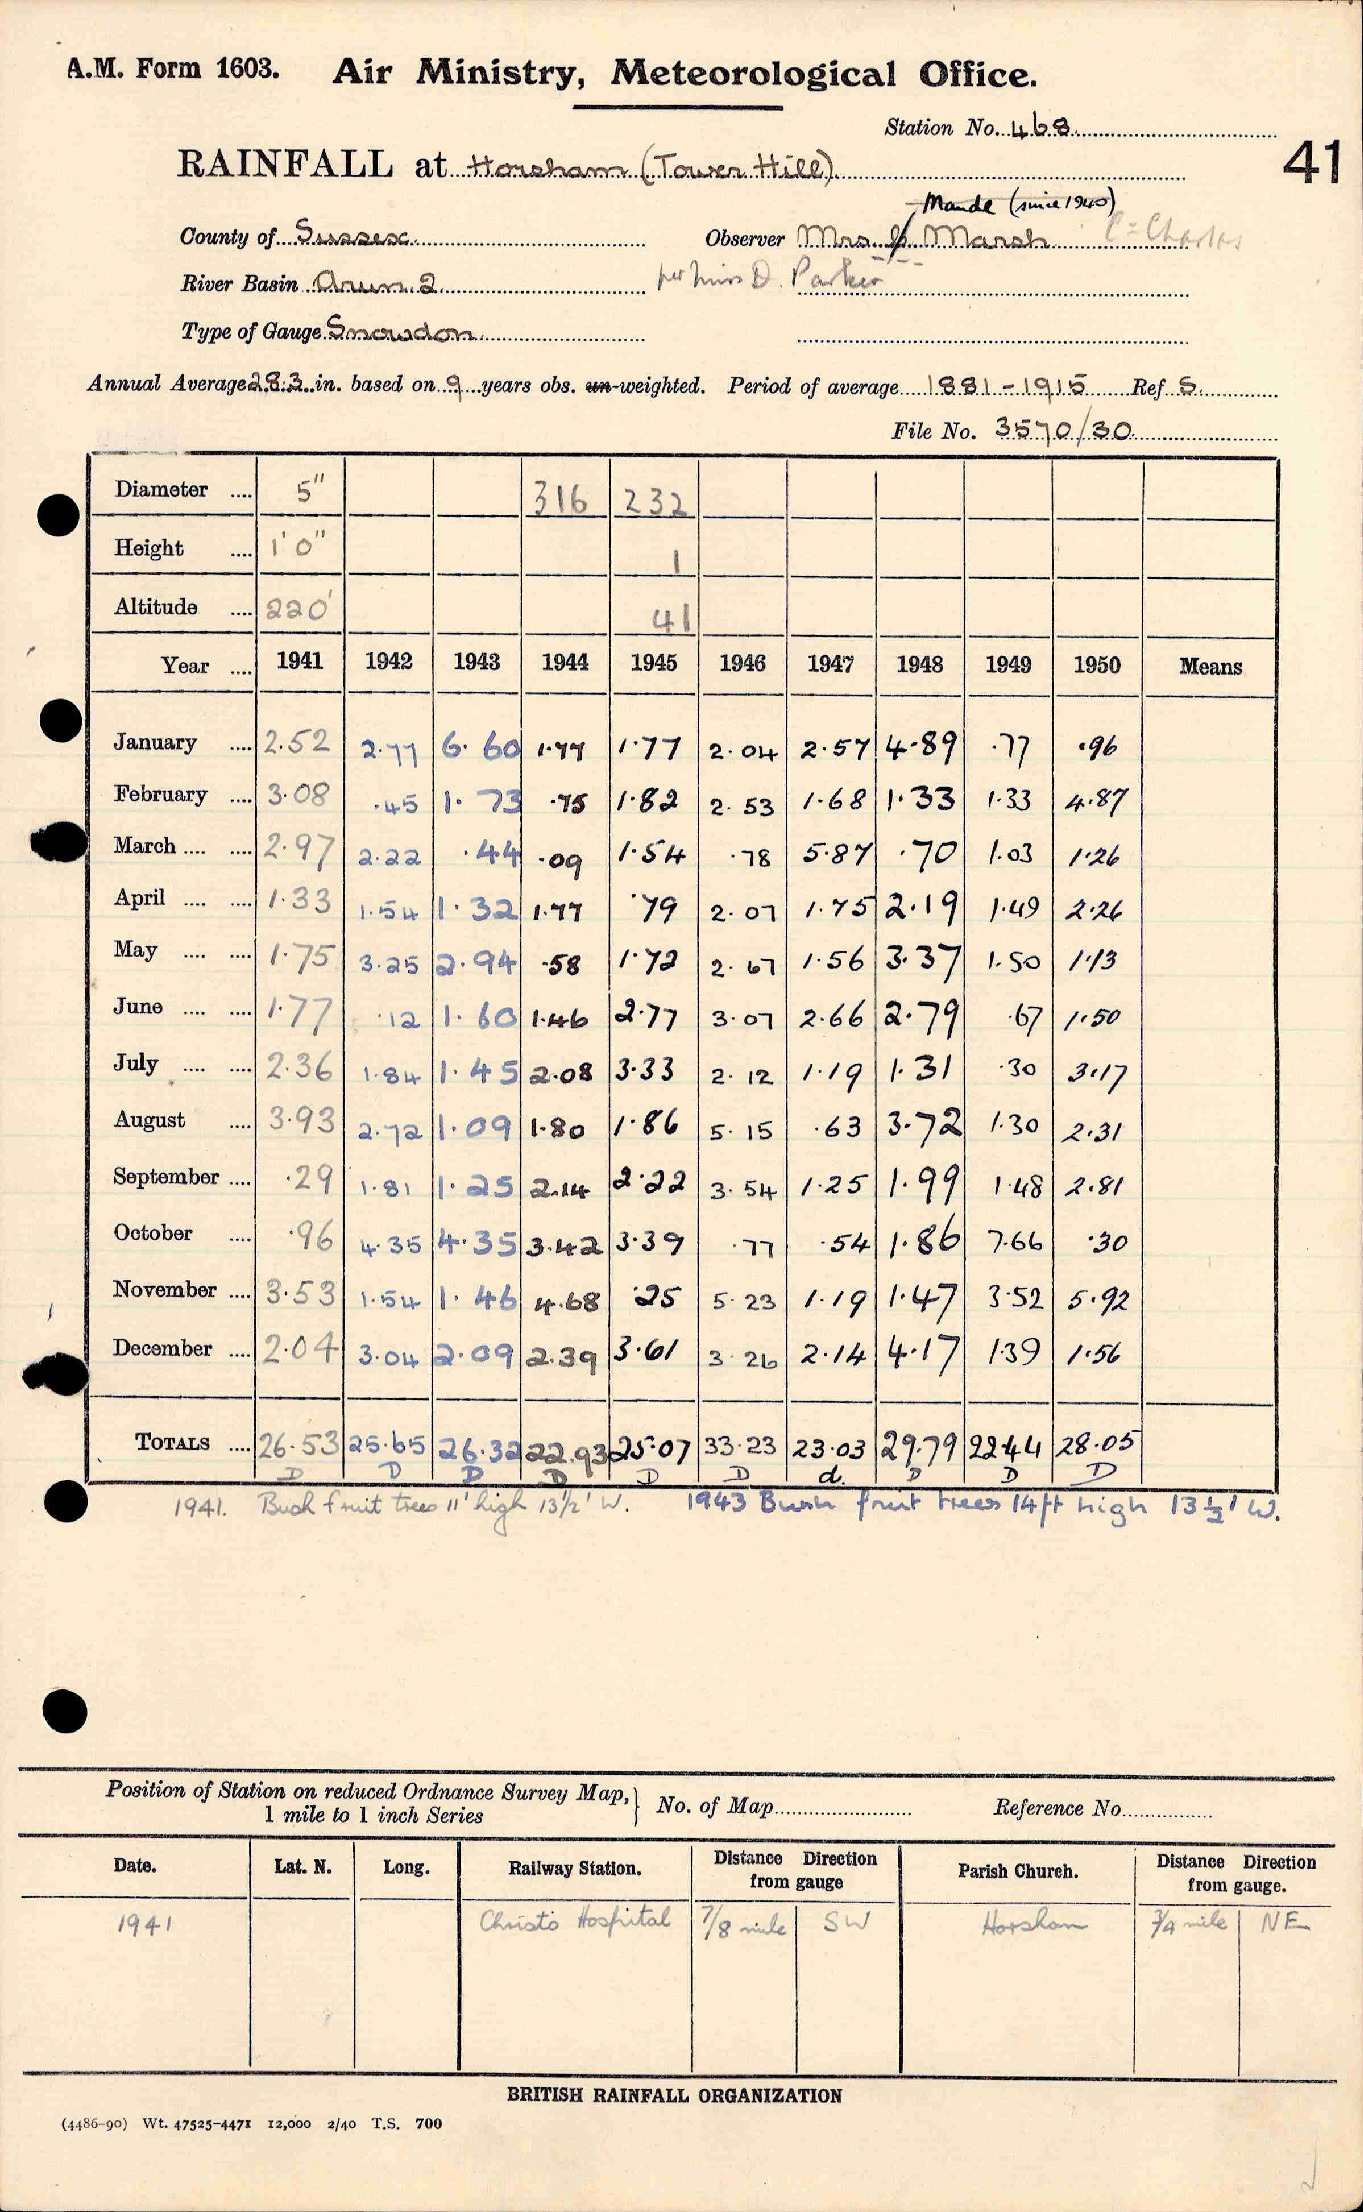 A.M. Form 1603. Air Ministry, Meteorological Office.
Station No. 468
41
RAINFALL at Horsham (Tower Hill)
Maude (since 1940)
County of Sussex Observer Mrs. Marsh C = Charles
River Basin Arun 2 per Miss D. Parker
Type of Gauge Snowdon
Annual Average 28.3 in. based on 9 years obs. un-weighted. Period of average 1881-1915 Ref S.
File No. 3570/30
Diameter .... 5" 316 232
Height .... 1'0" 1
Altitude .... 220' 41
Year .... 1941 1942 1943 1944 1945 1946 1947 1948 1949 1950 Means
January .... 2.52 2.77 6.60 1.77 1.77 2.04 2.57 4.89 .77 .96
February .... 3.08 .45 1.73 .75 1.82 2.53 1.68 1.33 1.33 4.87
March .... .... 2.97 2.22 .44 .09 1.54 .78 5.87 .70 1.03 1.26
April .... .... 1.33 1.54 1.32 1.77 .79 2.07 1.75 2.19 1.49 2.26
May .... .... 1.75 3.25 2.94 .58 1.72 2.67 1.56 3.37 1.50 1.13
June .... .... 1.77 .12 1.60 1.46 2.77 3.07 2.66 2.79 .67 1.50
July .... .... 2.36 1.84 1.45 2.08 3.33 2.12 1.19 1.31 .30 3.17
August .... 3.93 2.72 1.09 1.80 1.86 5.15 .63 3.72 1.30 2.31
September .... .29 1.81 1.25 2.14 2.22 3.54 1.25 1.99 1.48 2.81
October .... .96 4.35 4.35 3.42 3.39 .77 .54 1.86 7.66 .30
November .... 3.53 1.54 1.46 4.68 .25 5.23 1.19 1.47 3.52 5.92
December .... 2.04 3.04 2.09 2.39 3.61 3.26 2.14 4.17 1.39 1.56
TOTALS .... 26.53 25.65 26.32 22.93 25.07 33.23 23.03 29.79 22.44 28.05
D D D D D D d. D D D
1941. Bush fruit trees 11' high 13½' W. 1943 Bush fruit trees 14ft high 13½' W.
Position of Station on reduced Ordnance Survey Map, 1 mile to 1 inch Series } No. of Map Reference No.
Date. Lat. N. Long. Railway Station. Distance Direction from gauge Parish Church. Distance Direction from gauge.
1941 Christs Hospital 7/8 mile SW Horsham 3/4 mile NE
BRITISH RAINFALL ORGANIZATION
(4486-90) Wt. 47525-4471 12,000 2/40 T.S. 700